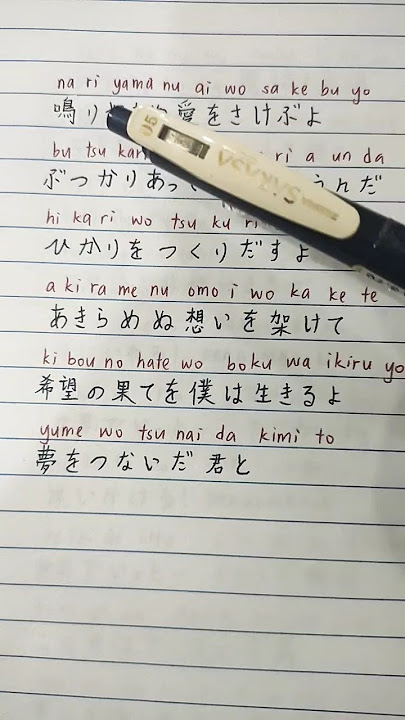 na ri yama nu ai wo sa ke bu yo
鳴り 愛をさけぶよ
bu tsu ri a un da
ぶつかりあって うんだ
hi ka ri wo tsu ku ri
ひかりを つくりだすよ
a ki ra me nu omo i wo ka ke te
あきらめぬ 想いを架けて
ki bou no hate wo boku wa ikiru yo
希望の果てを僕は生きるよ
yume wo tsu nai da kimi to
夢をつないだ 君と
0.5
SAKASA